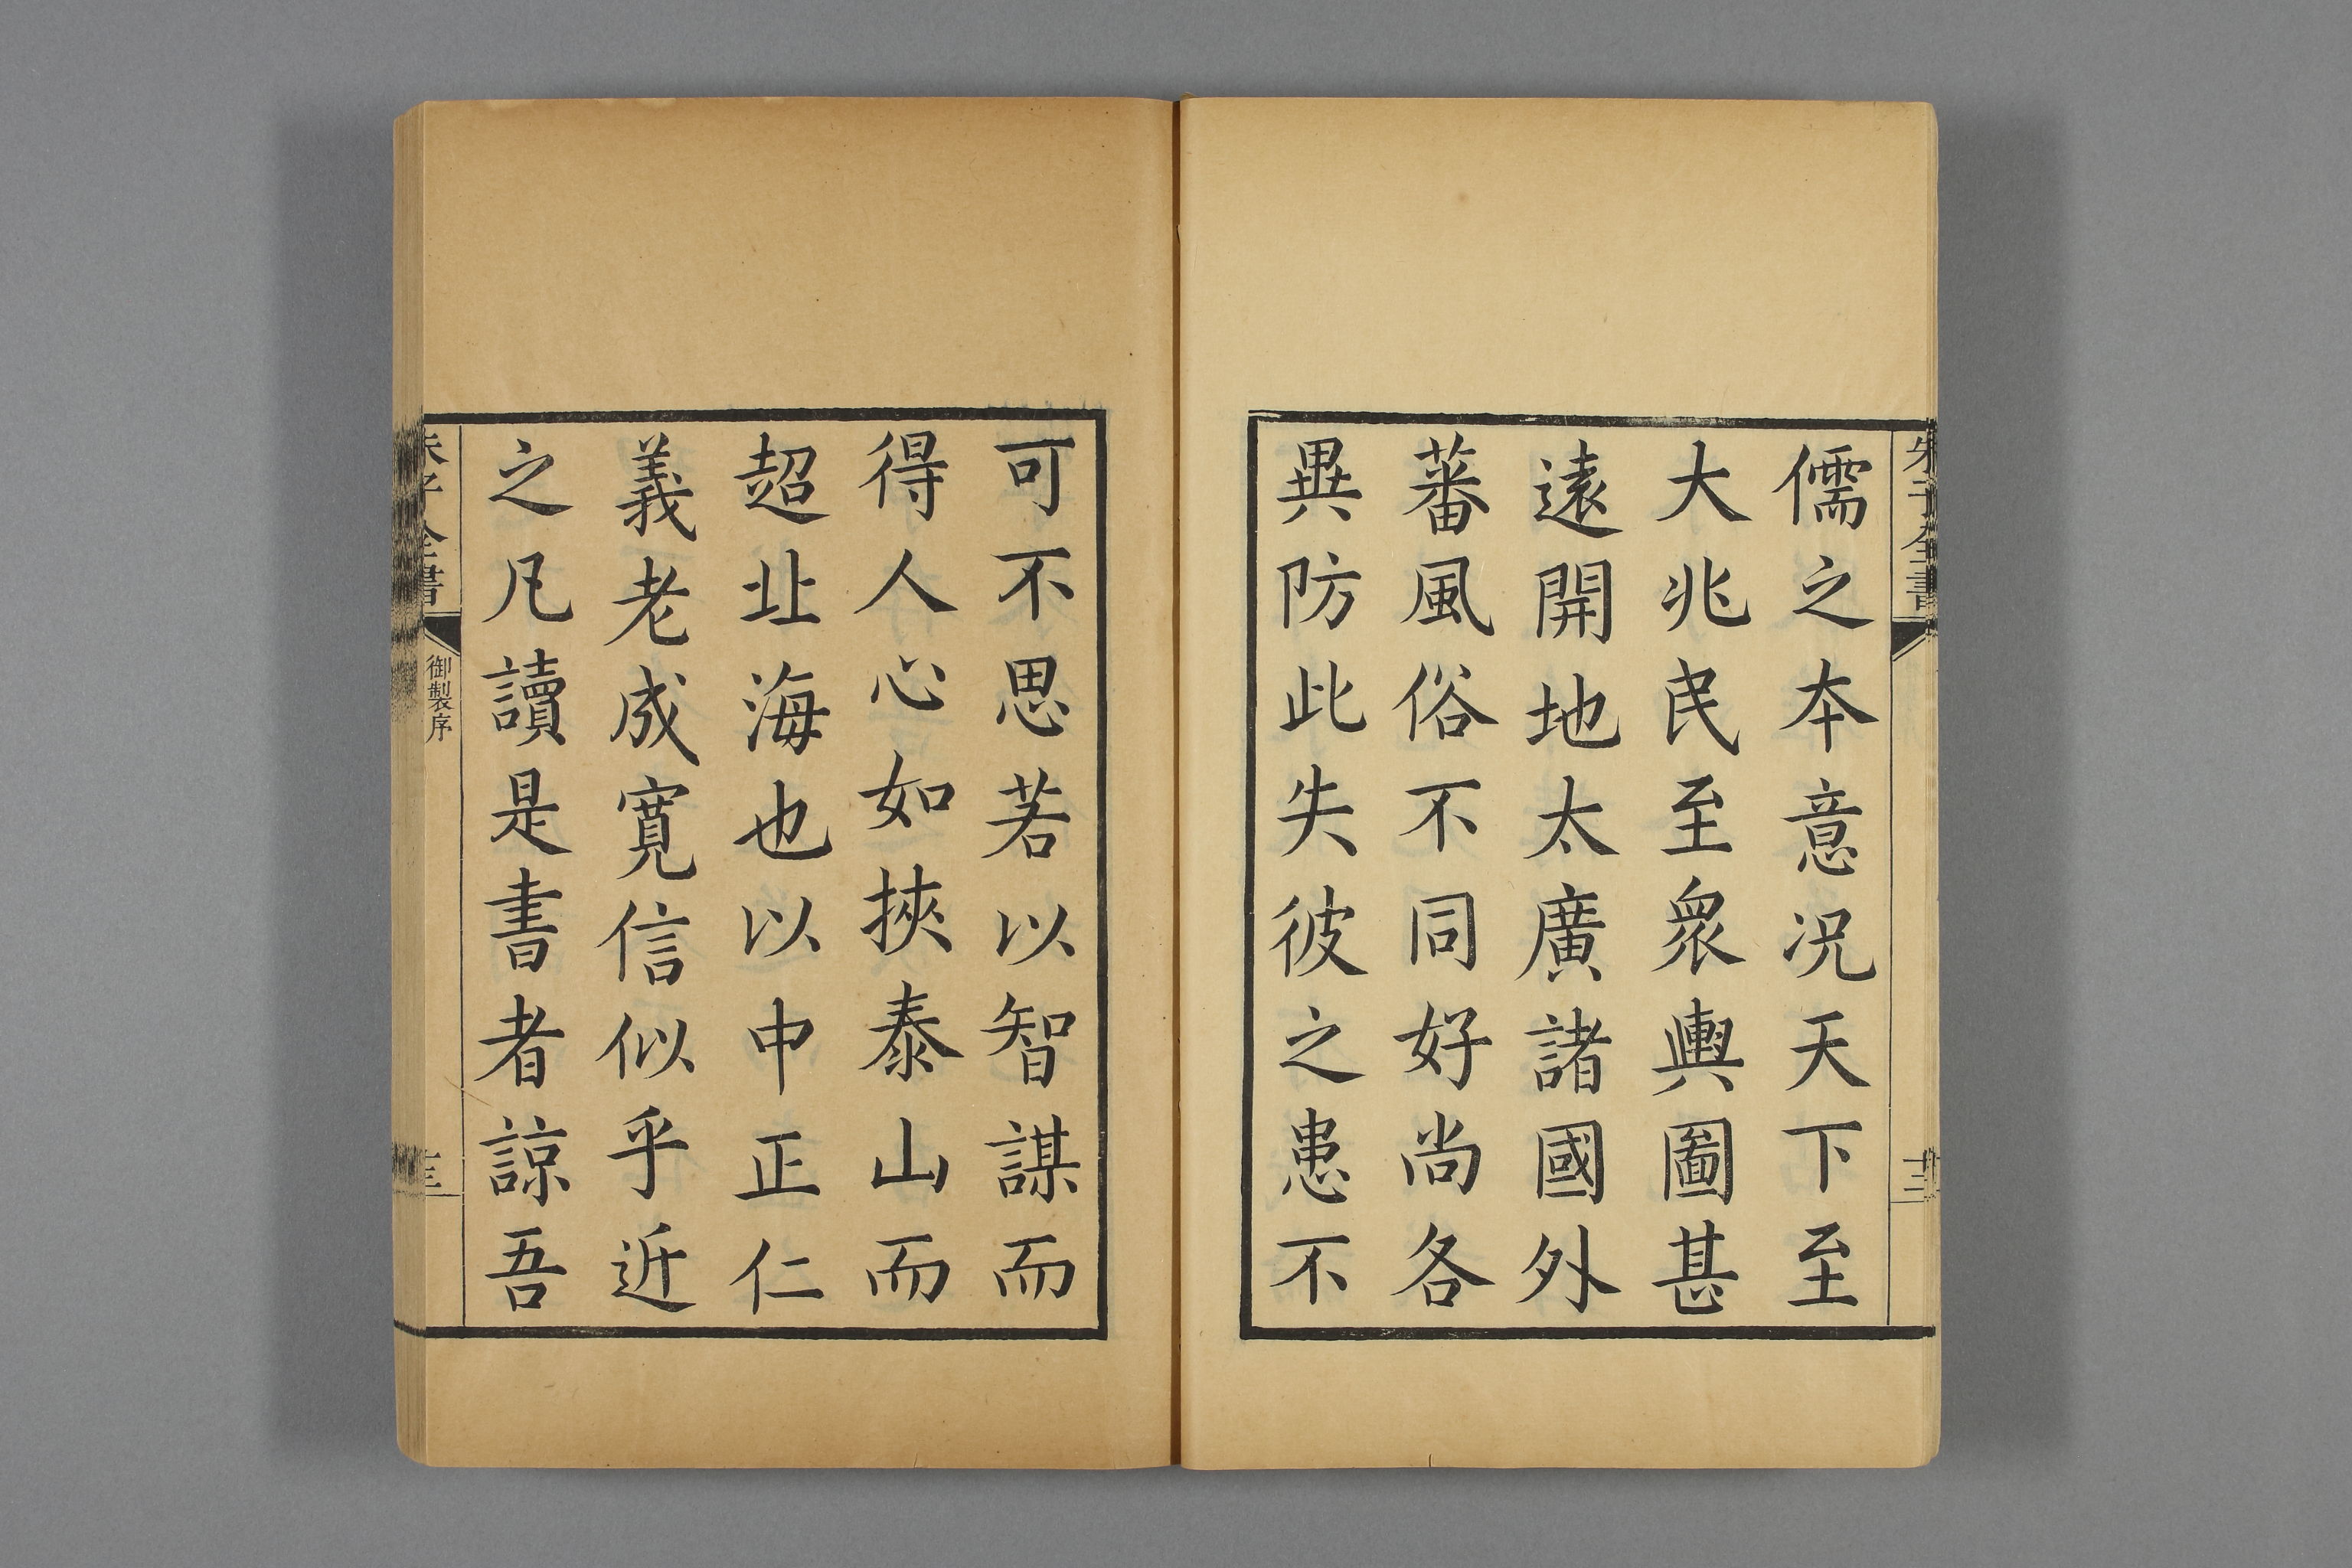 朱子全書
十二
儒之本意况天下至
大兆民至衆輿圖甚
遠開地太廣諸國外
蕃風俗不同好尚各
異防此失彼之患不
可不思若以智謀而
得人心如挾泰山而
超北海也以中正仁
義老成寬信似乎近
之凡讀是書者諒吾
朱子全書
御製序